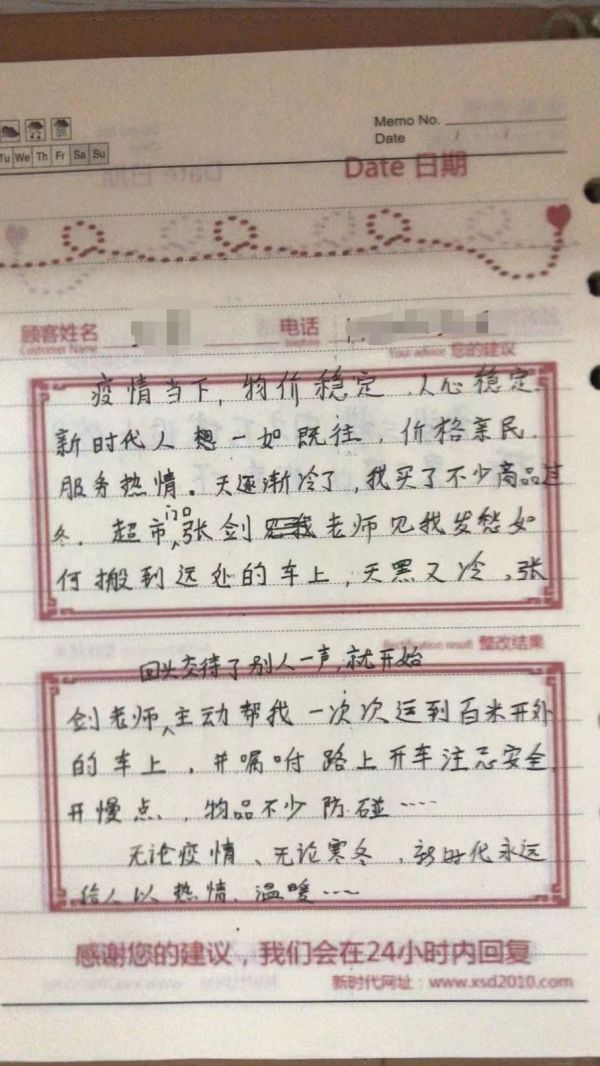 Memo No.
Date / /
Tu We Th Fr Sa Su
Date 日期
顾客姓名 电话
Customer Name
Your advice 您的建议
疫情当下，物价稳定，人心稳定.
新时代人想一如既往，价格亲民.
服务热情。天逐渐冷了，我买了不少商品过
冬. 超市门口张剑老师见我发愁如
何搬到远处的车上，天黑又冷，张
Rectification result 整改结果
回头交待了别人一声，就开始
剑老师主动帮我一次次运到百米开外
的车上，并嘱咐路上开车注意安全，
开慢点，物品不少防碰……
无论疫情、无论寒冬，新时代永远
给人以热情、温暖……
感谢您的建议，我们会在24小时内回复
新时代网址：www.xsd2010.com